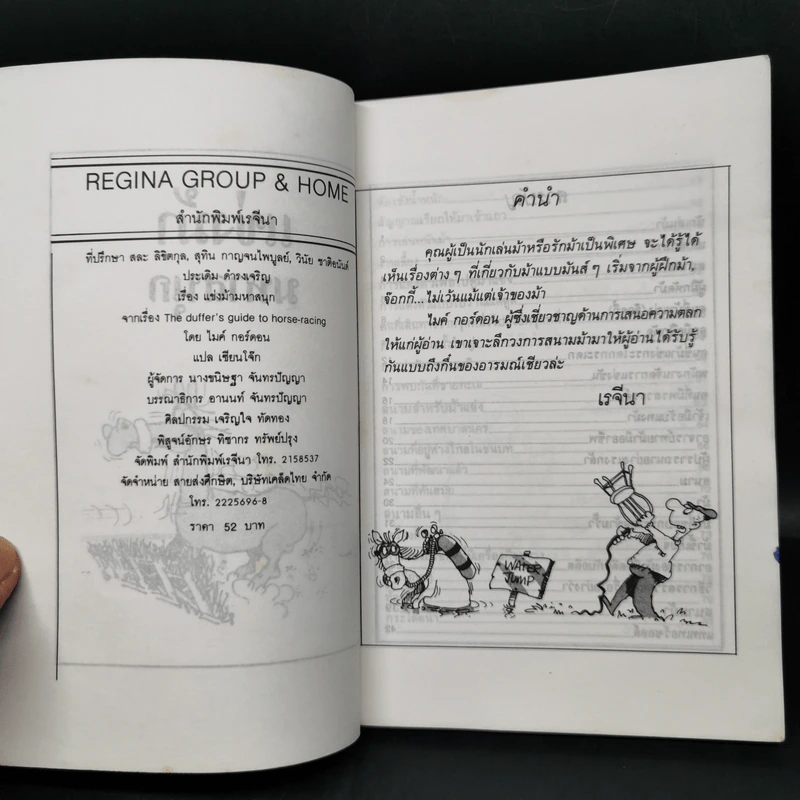 REGINA GROUP & HOME
สำนักพิมพ์เรจีนา
ที่ปรึกษา สละ ลิขิตกุล, สุทิน กาญจนไพบูลย์, วินัย ชาติอนันต์
ประเดิม ดำรงเจริญ
เรื่อง แข่งม้ามหาสนุก
จากเรื่อง The duffer's guide to horse-racing
โดย ไมค์ กอร์ดอน
แปล เซียนโจ๊ก
ผู้จัดการ นางขนิษฐา จันทรปัญญา
บรรณาธิการ อานนท์ จันทรปัญญา
ศิลปกรรม เจริญใจ ทัดทอง
พิสูจน์อักษร ทิชากร ทรัพย์ปรุง
จัดพิมพ์ สำนักพิมพ์เรจีนา โทร. 2158537
จัดจำหน่าย สายส่งศึกษิต, บริษัทเคล็ดไทย จำกัด
โทร. 2225696-8
ราคา 52 บาท
คำนำ
คุณผู้เป็นนักเล่นม้าหรือรักม้าเป็นพิเศษ จะได้รู้ได้
เห็นเรื่องต่าง ๆ ที่เกี่ยวกับม้าแบบมันส์ ๆ เริ่มจากผู้ฝึกม้า,
จ๊อกกี้...ไม่เว้นแม้แต่เจ้าของม้า
ไมค์ กอร์ดอน ผู้ซึ่งเชี่ยวชาญด้านการเสนอความตลก
ให้แก่ผู้อ่าน เขาเจาะลึกวงการสนามม้ามาให้ผู้อ่านได้รับรู้
กันแบบถึงกึ๋นของอารมณ์เชียวล่ะ
เรจีนา
WATER
JUMP